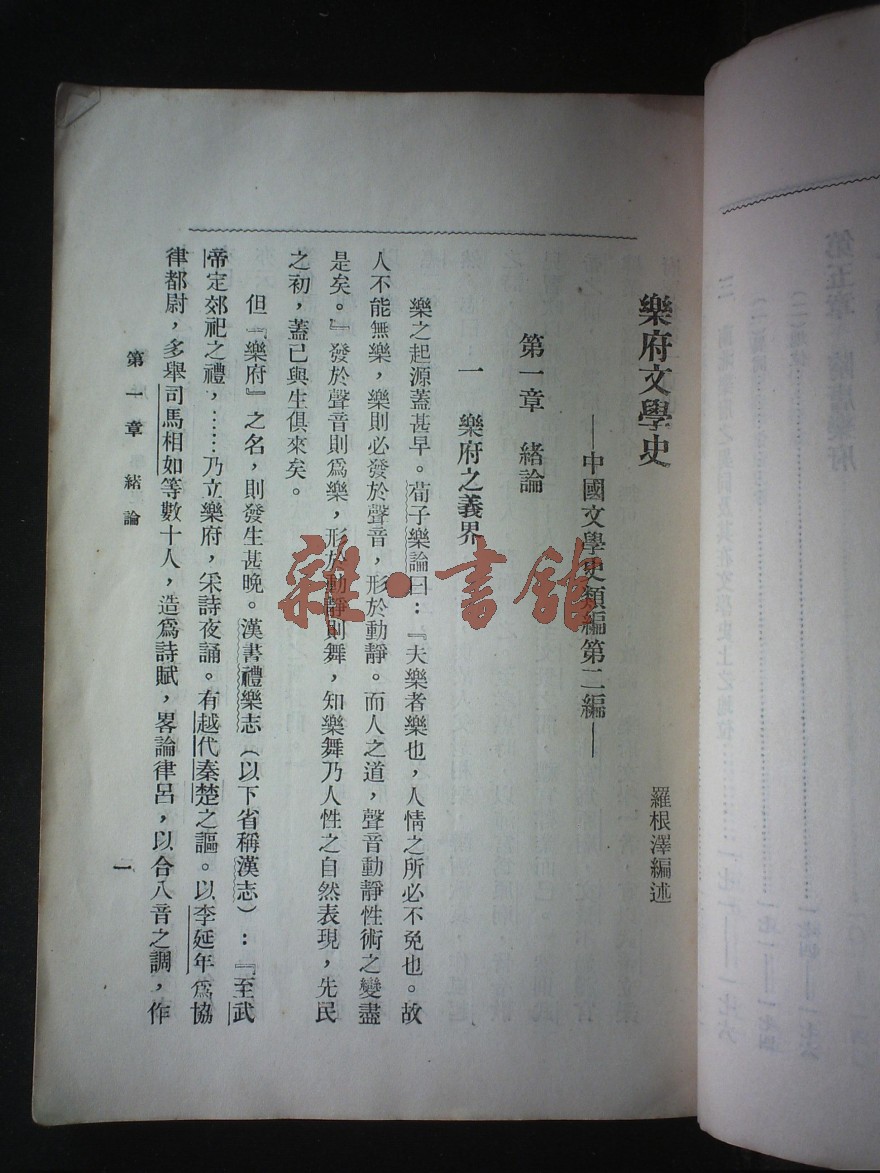 樂府文學史
——中國文學史類編第二編——
羅根澤編述
第一章　緒論
一　樂府之義界
樂之起源蓋甚早。荀子樂論曰：『夫樂者樂也，人情之所必不免也。故
人不能無樂，樂則必發於聲音，形於動靜。而人之道，聲音動靜性術之變盡
是矣。』發於聲音則爲樂，形於動靜則舞，知樂舞乃人性之自然表現，先民
之初，蓋已與生俱來矣。
但『樂府』之名，則發生甚晚。漢書禮樂志（以下省稱漢志）：『至武
帝定郊祀之禮，……乃立樂府，采詩夜誦。有越代秦楚之謳。以李延年爲協
律都尉，多舉司馬相如等數十人，造爲詩賦，畧論律呂，以合八音之調，作
第一章　緒論
一
雜·書館